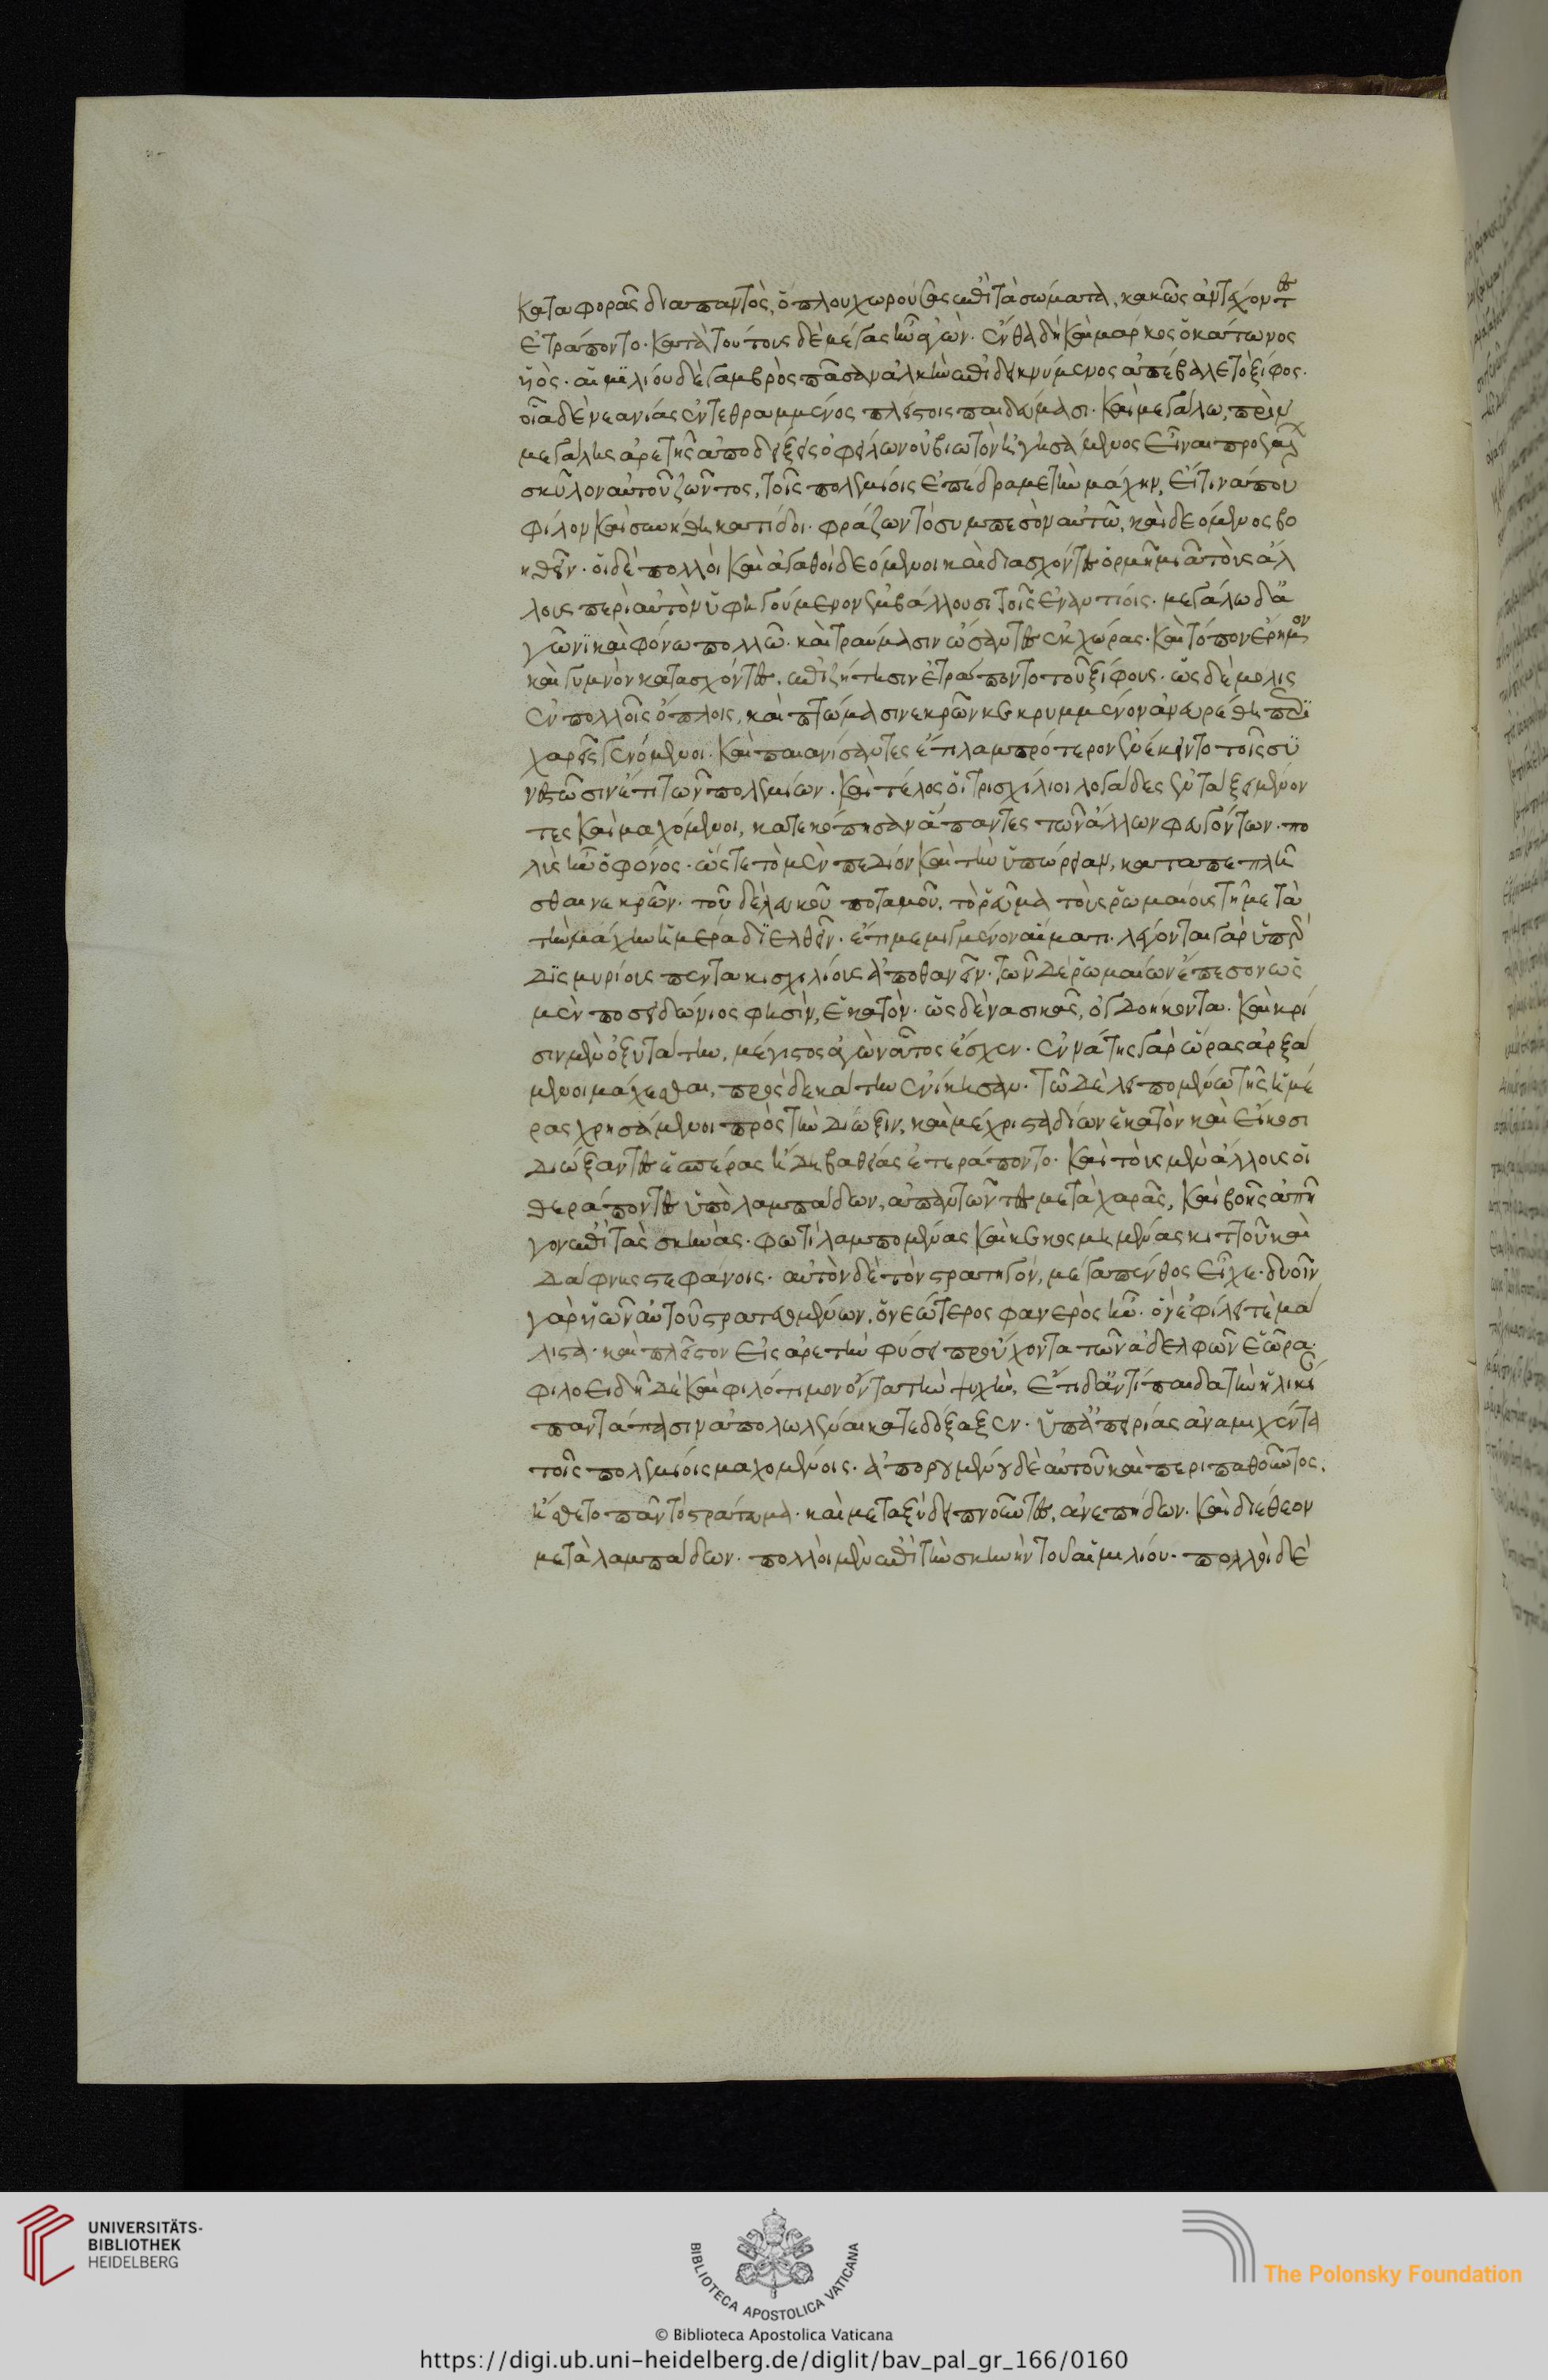 καταφορᾶς διαπαντὸς, ὅπλου χωρούσας ἐπὶ τὰ σώματα, κακῶς ἀντέχοντες
ἐτράποντο. κατὰ τούτους δὲ μέγας ἦν ἀγών. ἔνθα δὴ καὶ μάρκος ὁ κάτωνος
υἱὸς. αἰμιλίου δὲ γαμβρὸς πᾶσαν ἀλκὴν ἐπιδεικνύμενος ἀπέβαλε τὸ ξίφος.
οἷα δὲ νεανίας ἐντεθραμμένος πλείστοις παιδεύμασι. καὶ μεγάλω πρὶ
μεγάλης ἀρετῆς ἀποδείξεις ὀφείλων οὐ βιωτὸν ἡγησάμενος εἶναι προέμενος
σκῦλον αὐτοῦ ζῶντος, τοῖς πολεμίοις ἐπέδραμε τὴν μάχην, εἴ τινά που
φίλον καὶ συνήθη κατίδοι. φράζων τὸ συμπεσὸν αὐτῶ, καὶ δεόμενος βο
ηθεῖν. οἱ δὲ πολλοὶ καὶ ἀγαθοὶ δεόμενοι καὶ διασχόντες ὁρμῆ μιᾶ τοὺς ἄλ
λους περὶ αὐτὸν ὑφηγούμενον ἐμβάλλουσι τοῖς ἐναντίοις. μεγάλω δ' ἀ
γῶνι καὶ φόνω πολλῶ. καὶ τραύμασιν ὤσαντες ἐκ χώρας. καὶ τόπον ἔρημον
καὶ γυμνὸν κατασχόντες. ἐπὶ ζήτησιν ἐτράποντο τοῦ ξίφους. ὡς δὲ μόλις
ἐν πολλοῖς ὅπλοις, καὶ πτώμασι νεκρῶν κεκρυμμένον ἀνευρέθη περι
χαρεῖς γενόμενοι. καὶ παιανίσαντες ἔτι λαμπρότερον ἐνέκειντο τοῖς συ
νεστῶσιν ἔτι τῶν πολεμίων. καὶ τέλος οἱ τρισχίλιοι λογάδες ἐν τάξει μένον
τες καὶ μαχόμενοι, κατεκόπησαν ἅπαντες τῶν ἄλλων φευγόντων. πο
λὺς ἦν ὁ φόνος. ὥστε τὸ μὲν πεδίον καὶ τὴν ὑπώρειαν, καταπεπλῆ
σθαι νεκρῶν. τοῦ δὲ λευκοῦ ποταμοῦ. τὸ ῥεῦμα τοὺς ῥωμαίους τῆ μετὰ
τὴν μάχην ἡμέρα διελθεῖν. ἔτι μεμιγμένον αἵματι. λέγονται γὰρ ὑπὲρ
δισμυρίους πεντακισχιλίους ἀποθανεῖν. τῶν δὲ ῥωμαίων ἔπεσον ὡς
μὲν ποσειδώνιος φησὶν, ἑκατὸν. ὡς δὲ νασικᾶς, ὀγδοήκοντα. καὶ κρί
σιν μὲν ὀξυτάτην, μέγιστος ἀγὼν οὗτος ἔσχεν. ἐννάτης γὰρ ὥρας ἀρξά
μενοι μάχεσθαι, πρὸς δεκάτην ἐνίκησαν. τῶ δὲ λειπομένω τῆς ἡμέ
ρας χρησάμενοι πρὸς τὴν δίωξιν, καὶ μέχρι σταδίων ἑκατὸν καὶ εἴκοσι
διώξαντες ἑσπέρας ἤδη βαθείας ἐτεράποντο. καὶ τοὺς μὲν ἄλλους οἱ
θεράποντες ὑπὸ λαμπάδων, ἀπαντῶντες μετὰ χαρᾶς, καὶ βοῆς ἀπῆ
γον ἐπὶ τὰς σκηνάς. φωτὶ λαμπομένας καὶ κεκοσμημένας κιττοῦ καὶ
δάφνης στεφάνοις. αὐτὸν δὲ τὸν στρατηγὸν, μέγα πένθος εἶχε. δυοῖν
γὰρ υἱῶν αὐτοῦ στρατευομένων, ὁ νεώτερος φανερὸς ἦν. ὃν ἐφίλει τε μά
λιστα. καὶ πλεῖστον εἰς ἀρετὴν φύσει προύχοντα τῶν ἀδελφῶν ἑώρα.
φιλοειδῆ δὲ καὶ φιλότιμον ὄντα τὴν ψυχὴν, ἔτι δ' ἀντίπαιδα τὴν ἡλικίαν
παντάπασιν ἀπολωλέναι κατεδόξαξεν. ὑπ' ἀπειρίας ἀναμιχέντα
τοῖς πολεμίοις μαχομένοις. ἀπορουμένου δὲ αὐτοῦ καὶ περιπαθοῦντος,
ἤσθετο πᾶν τὸ στράτευμα. καὶ μεταξὺ δειπνοῦντες, ἀνεπήδων. καὶ διέθεον
μετὰ λαμπάδων. πολλοὶ μὲν ἐπὶ τὴν σκηνὴν τοῦ αἰμιλίου. πολλοὶ δὲ
UNIVERSITÄTS-
BIBLIOTHEK
HEIDELBERG
BIBLIOTECA APOSTOLICA VATICANA
The Polonsky Foundation
© Biblioteca Apostolica Vaticana
https://digi.ub.uni-heidelberg.de/diglit/bav_pal_gr_166/0160